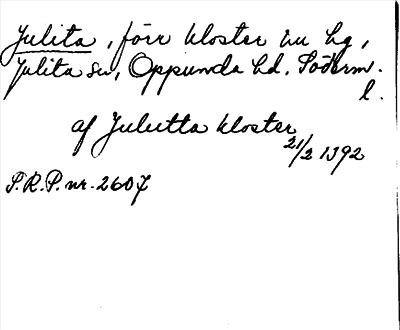 Julita, förr kloster nu hg,
Julita sn, Oppunda hd. Söderm.
l.
af Julutta kloster
21/2 1392
S.R.P. nr. 2607